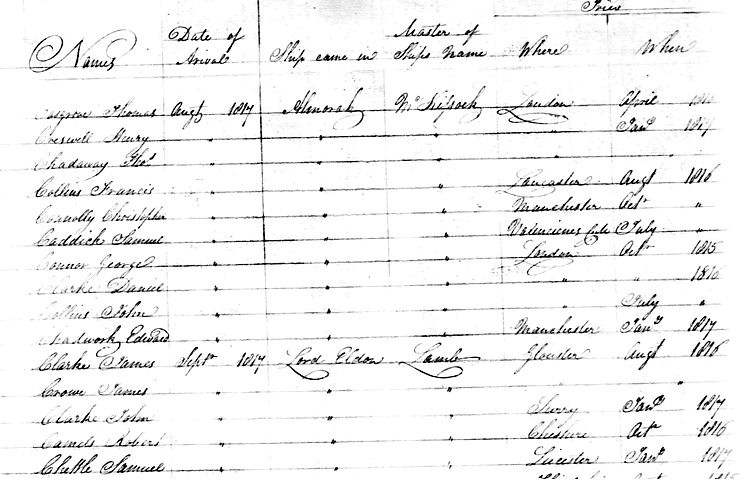 Tried
Names Date of Arival Ship came in Master of Ships Name Where When
Cosgrove Thomas Augt 1817 Almorah McKissock London April
Creswell Henry " " " " Jany 1817
Chadaway Thos " " " " "
Collins Francis " " " Lancaster Augt 1816
Connolly Christopher " " " Manchester Octr "
Caddick Samuel " " " Valencienes July "
Connor George " " " London Octr 1815
Clarke Daniel " " " " " 1816
Collins John " " " " July "
Chadwork Edward " " " Manchester Jany 1817
Clarke James Septr 1817 Lord Eldon Lamb Glouster Augt 1816
Crowe James " " " " "
Clarke John " " " Surry Jany 1817
Camels Robert " " " Cheshire Octr 1816
Chettle Samuel " " " Leicester Jany 1817